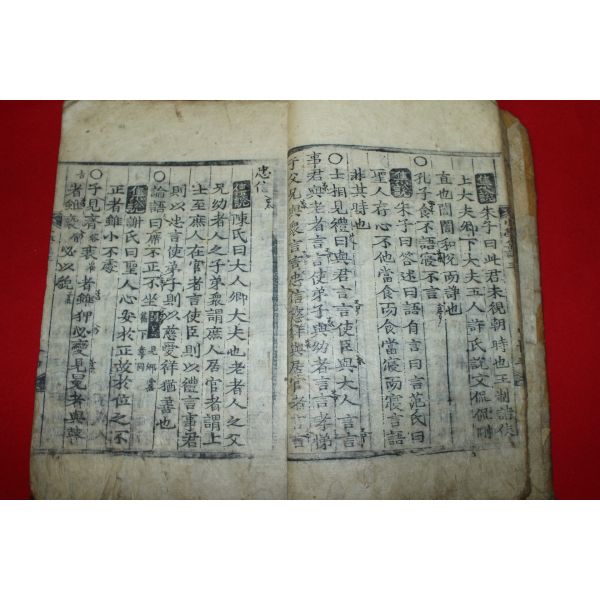 集說朱子曰此君未視朝時也王制諸侯
上大夫卿下大夫五人許氏說文侃侃剛
直也誾誾和悅而諍也
○孔子食不語寢不言
集說朱子曰答述曰語自言曰言范氏曰
聖人存心不他當食而食當寢而寢言語
非其時也
○士相見禮曰與君言言使臣與大人言言
事君與老者言言使弟子與幼者言言孝悌
于父兄與衆言言忠信慈祥與居官者言言
忠信
集說陳氏曰大人卿大夫也老者人之父
兄幼者人之子弟衆謂庶人居官者謂上
士至庶人在官者言使臣則以禮言事君
則以忠言使弟子則以慈愛祥猶善也
○論語曰席不正不坐
集說謝氏曰聖人心安於正故於位之不
正者雖小不處
○子見齊衰者雖狎必變見冕者與瞽
者雖褻必以貌